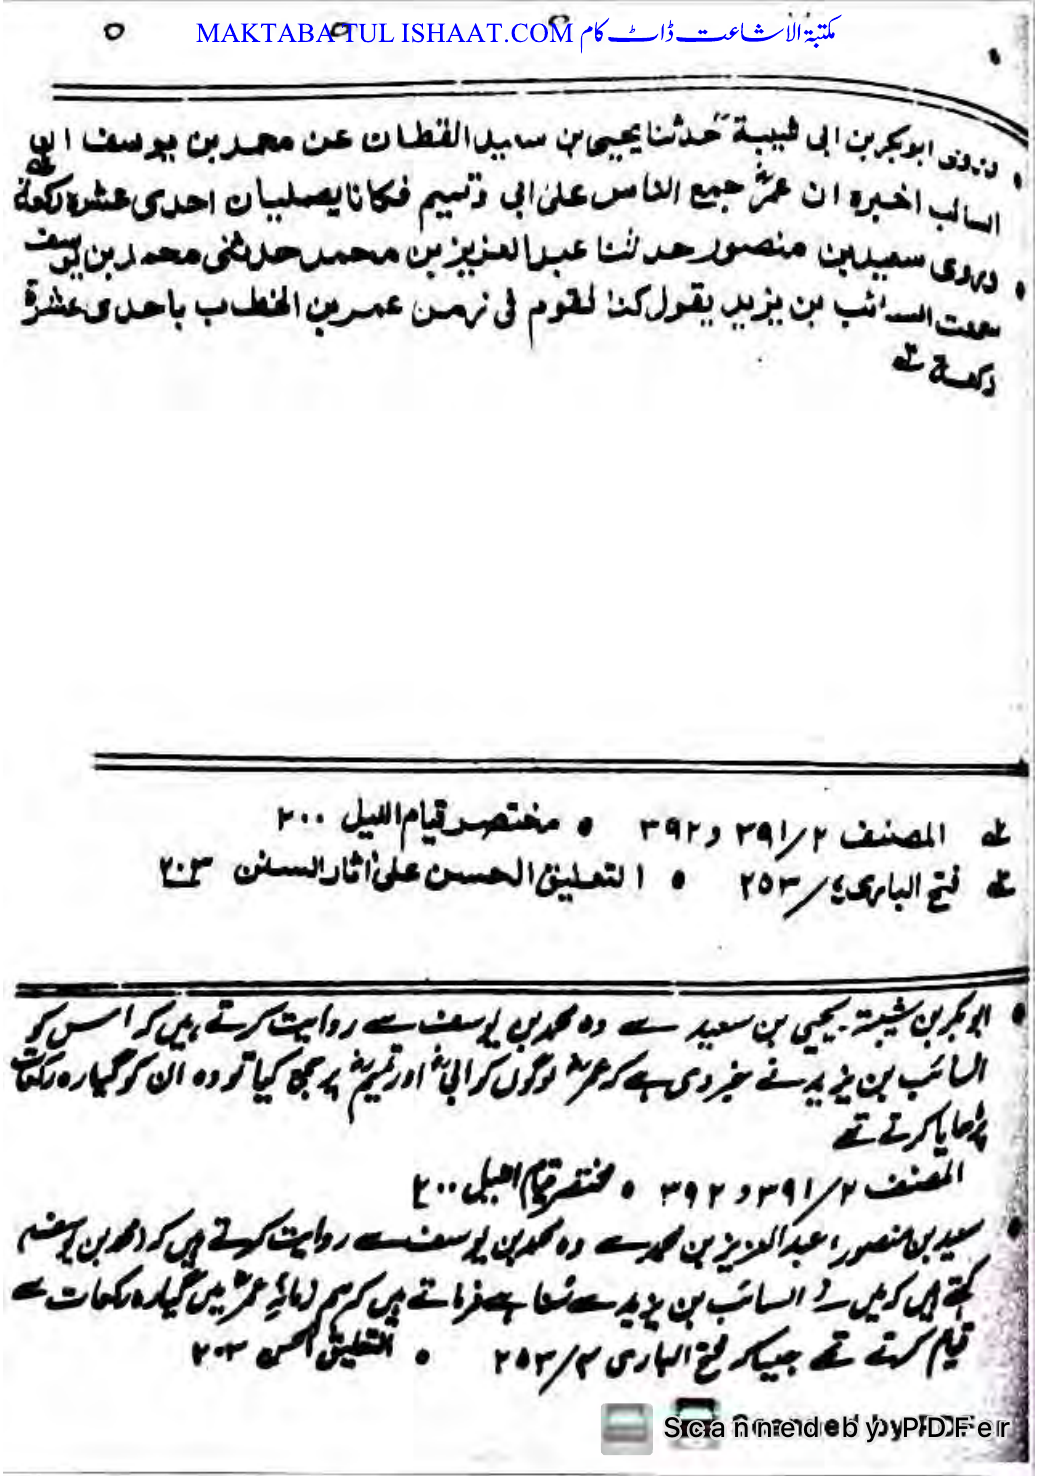 MAKTABA TUL ISHAAT.COM مکتبۃ الاشاعت ڈاٹ کام
وروى ابوبكر بن ابى شيبة حدثنا يحيى بن سعيد القطان عن محمد بن يوسف ان
السائب اخبره ان عمرؓ جمع الناس على ابى وتميم فكانا يصليان احدى عشرة ركعة
وروى سعيد بن منصور حدثنا عبد العزيز بن محمد حدثنى محمد بن يوسف
سمعت السائب بن يزيد يقول كنا نقوم فى زمن عمر بن الخطاب باحدى عشرة
ركعة
المصنف ٢/٣٩١ و ٣٩٢ • مختصر قيام الليل ٢٠٠
فتح البارى ٤/٢٥٣ • التعليق الحسن على أثار السنن ٢٠٣
• ابوبکر بن شیبۃ یحیی بن سعید سے وہ محمد بن یوسف سے روایت کرتے ہیں کہ اس کو
السائب بن یزید نے خبر دی ہے کہ عمرؓ لوگوں کو ابیؓ اور تمیمؓ پر جمع کیا تو وہ ان کو گیارہ رکعات
پڑھایا کرتے تھے
المصنف ٢/٣٩١ و ٣٩٢ • مختصر قیام اللیل ٢٠٠
• سعید بن منصور، عبد العزیز بن محمد سے وہ محمد بن یوسف سے روایت کرتے ہیں کہ (محمد بن یوسف
کہتے ہیں کہ میں نے السائب بن یزید سے سنا ہے فرماتے ہیں کہ ہم زمانۂ عمرؓ میں گیارہ رکعات سے
قیام کرتے تھے جیسا کہ فتح الباری ٤/٢٥٣ • التعلیق الحسن ٢٠٣
Scanned by PDFer